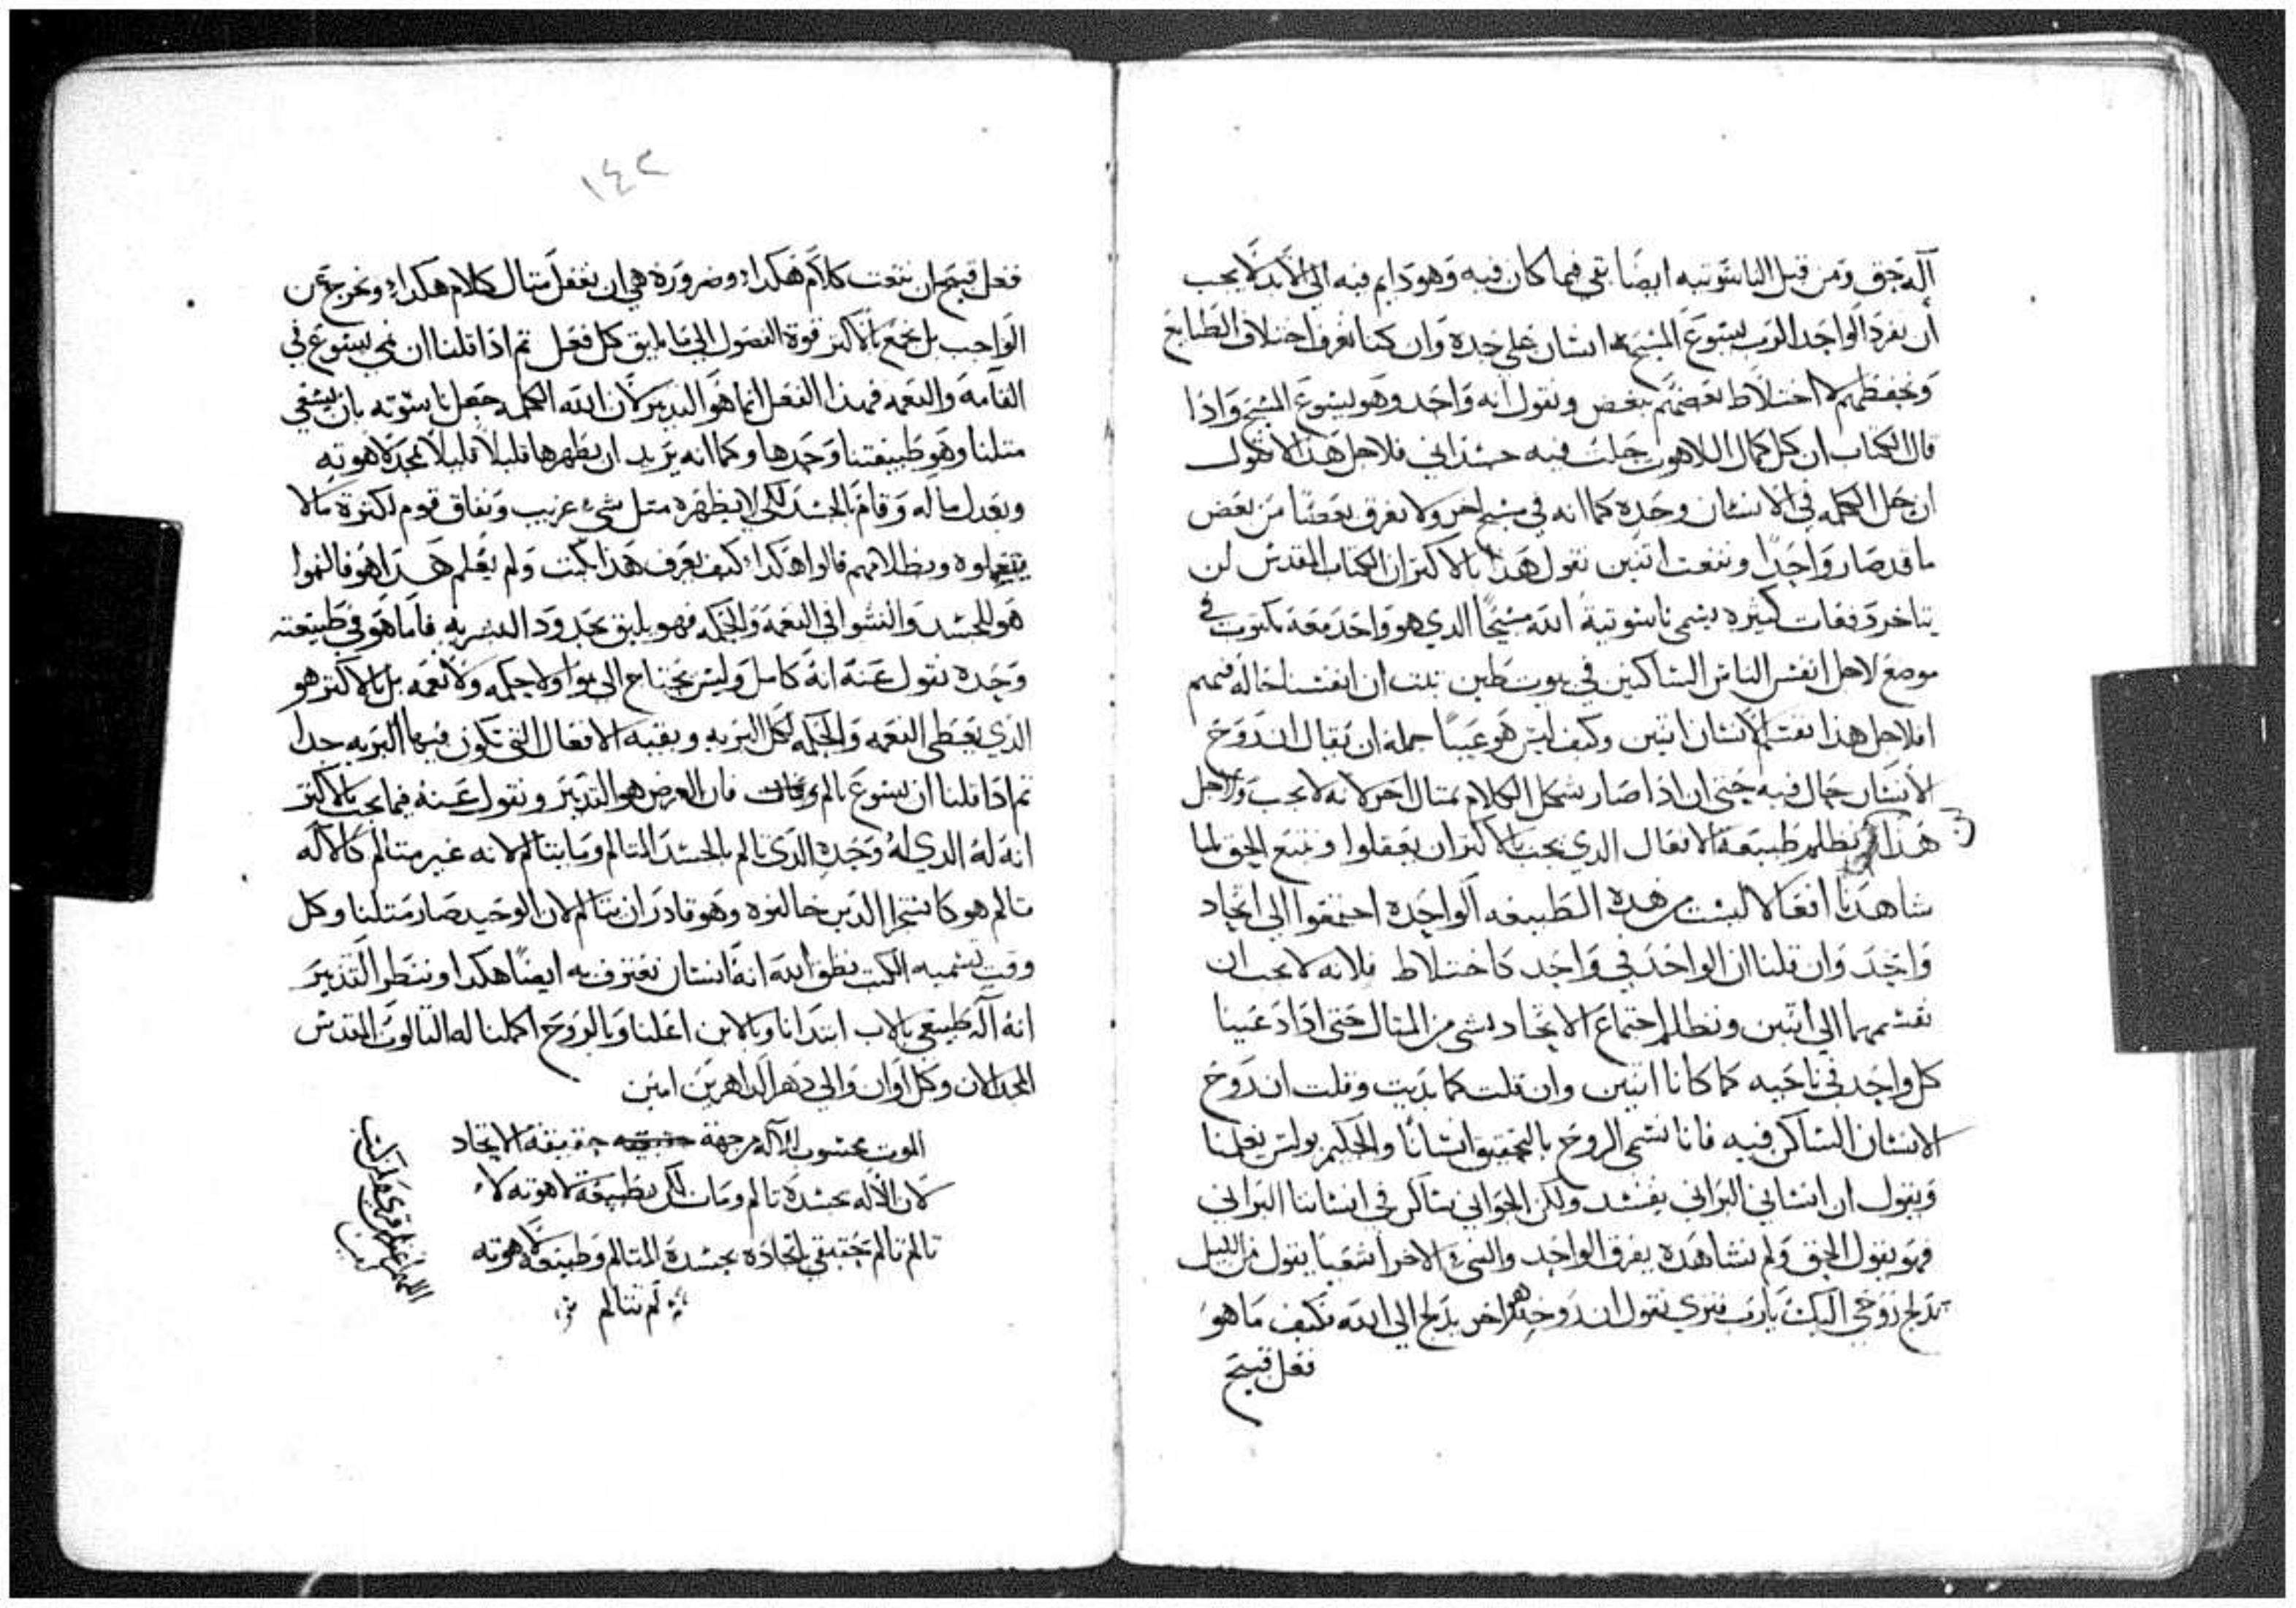 آله حق ومن قبل الناسوتيه ايضا بقي فيما كان فيه وهو دايم فيه الي الابد لا يجب
أن نفرد الواحد الرب يسوع المسيح انسان علي حده وان كنا نعرف اختلاف الطبايع
ونحفظهم لا اختلاط بعضهم ببعض ونقول انه واحد وهو يسوع المسيح واذا
قال الكتاب ان كل كمال اللاهوت حلت فيه جسداني فلاجل هذا لا نقول
ان حل الكلمه في الانسان وحده كما انه في مسيح اخر ولا نفرق بعضا من بعض
ما قد صار واحدا وننعت اتنين نقول هذا بالاكتر ان الكتاب المقدس لن
يتاخر دفعات كثيره يسمي ناسوتية الله مسيحا الدي هو واحد معه مكتوب في
موضع لاجل انفس الناس الساكنين في بيوت طين نلت ان انفسنا خاله فيهم
افلاجل هذا نقسم الانسان اتنين وكيف ليس هو عيبا جمله ان يقال ان روح
الانسان حال فيه حتي ان اذا صار شكل الكلام بمتال اخر لانه لا يجب ولاجل
هذا نظلم طبيعة الافعال الدي يجب بالاكتر ان يعقلوا ونتبع الحق لما
شاهدنا افعالا ليست من هده الطبيعه الواحده اجتمعوا الي اتحاد
واحد وان قلنا ان الواحد في واحد كاختلاط فلانه لا يجب ان
نقسمهما الي اتنين ونظلم اجتماع الاتحاد بشي من المتال حتي اذا دعينا
كل واحد في ناحيه كما كانا اتنين وان قلت كما بديت وقلت ان روح
الانسان الساكن فيه فانا نسمي الروح بالتحقيق انسانا والحكيم بولس يعلمنا
ويقول ان انساني البراني يفسد ولكن الجواني ساكن في انساننا البراني
فهو يقول الحق ولم نشاهده يفرق الواحد والشي الاخر اشعيا يقول من الليل
تدلج روحي اليك يارب فنري نقول ان روحه هو اخر يدلج الي الله فكيف ما هو
فعل قبيح
١٤٢
فعل قبيح ان ننعت كلام هكدا وضروره هي ان نغفل متال كلام هكدا ونخرج عن
الواجب بل نجمع بالاكتر قوة الفصول الي ما يليق كل فعل تم اذا قلنا ان نمي يسوع في
القامه والنعمه فهدا الفعل انما هو التدبير لان الله الكلمه جعل ناسوته بان يسعي
متلنا وهو طبيعتنا وحدها وكما انه يريد ان يظهرها قليلا قليلا بمجد لاهوته
ويعدل ما له وقام بالجسد لكي لا يظهره متل شيء غريب ونفاق قوم لكتره ما لا
يتعلموه وبطلانهم قالوا هكدا كيف يعرف هذا يكتب ولم يعلم هدا هو فالنموا
هو للجسد والنشوا في النعمه والحكمه فهو يليق بحدود البشريه فاما هو في طبيعته
وحده نقول عنه انه كامل وليس يحتاج الي نموا ولا حكمه ولا نعمه بل بالاكتر هو
الدي يعطي النعمه والحكمه لكل البريه وبقية الافعال التي تكون فيها البريه جدا
تم اذا قلنا ان يسوع تالم ومات فان العرض هو التدبير ونقول عنه فيما يجب بالاكتر
انه له الدي له وحده الدي تالم بالجسد المتالم وما يتالم لانه غير متالم كالاله
تالم هو كما تستجرا الدين خالفوه وهو قادر ان يتالم لان الوحيد صار متلنا وكل
وقت تسميه الكتب نطق الله انه انسان نعترف به ايضا هكدا وننظر التدبير
انه آله طبيعي بالاب ابتدانا وبالابن اعلنا وبالروح اكملنا له التالوت المقدس
المجد الان وكل اوان والي دهر الداهرين امين
الموت محسوب للآله من جهة حقيقه حقيقة الاتحاد
لان الاله بجسده تالم ومات لكن بطبيعة لاهوته لا
تالم تالم حقيقي باتحاده بجسده المتالم وطبيعة لاهوته
لم تتالم